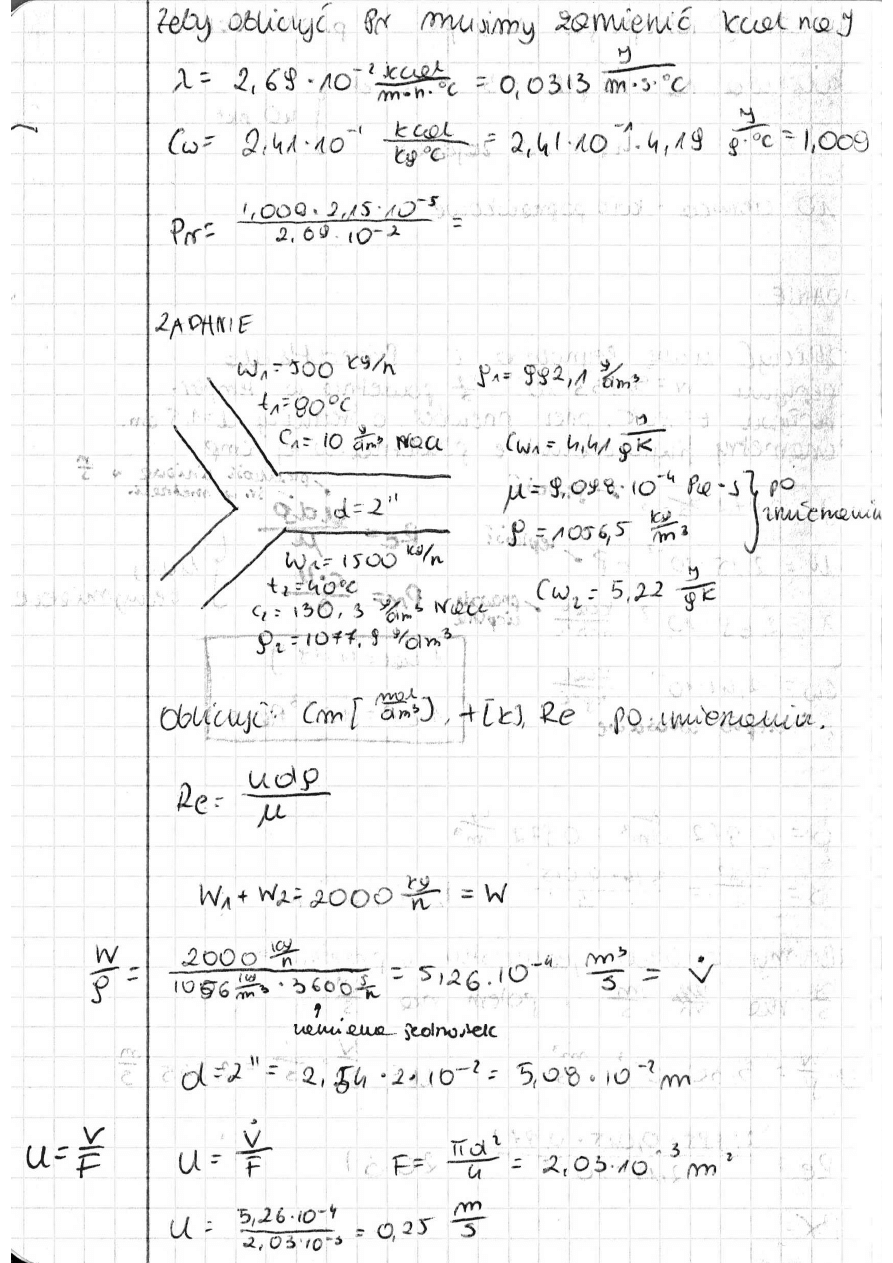 Żeby obliczyć Pr musimy zamienić kcal na J
λ = 2,69·10⁻² kcal/m·h·°C = 0,0313 J/m·s·°C
Cw = 2,41·10⁻¹ kcal/kg°C = 2,41·10⁻¹·4,19 J/g·°C = 1,009
Pr = 1,009·2,15·10⁻⁵ / 2,69·10⁻² =
ZADANIE
W₁=500 kg/h
t₁=80°C
C₁=10 g/dm³ NaCl
ρ₁=992,1 g/dm³
Cw₁=4,41 J/gK
d=2"
μ=9,098·10⁻⁴ Pa·s
ρ=1056,5 kg/m³
po zmieszaniu
W₂=1500 kg/h
t₂=40°C
C₂=130,3 g/dm³ NaCl
ρ₂=1077,9 g/dm³
Cw₂=5,22 J/gK
Obliczyć: Cm [mol/dm³], t[K], Re po zmieszaniu.
Re = udρ/μ
W₁+W₂=2000 kg/h = W
W/ρ = 2000 kg/h / 1056 kg/m³ · 3600 s/h = 5,26·10⁻⁴ m³/s = V̇
zamiana jednostek
d=2"=2,54·2·10⁻² = 5,08·10⁻² m
u=V/F u=V̇/F F=πd²/4 = 2,03·10⁻³ m²
u = 5,26·10⁻⁴ / 2,03·10⁻³ = 0,25 m/s